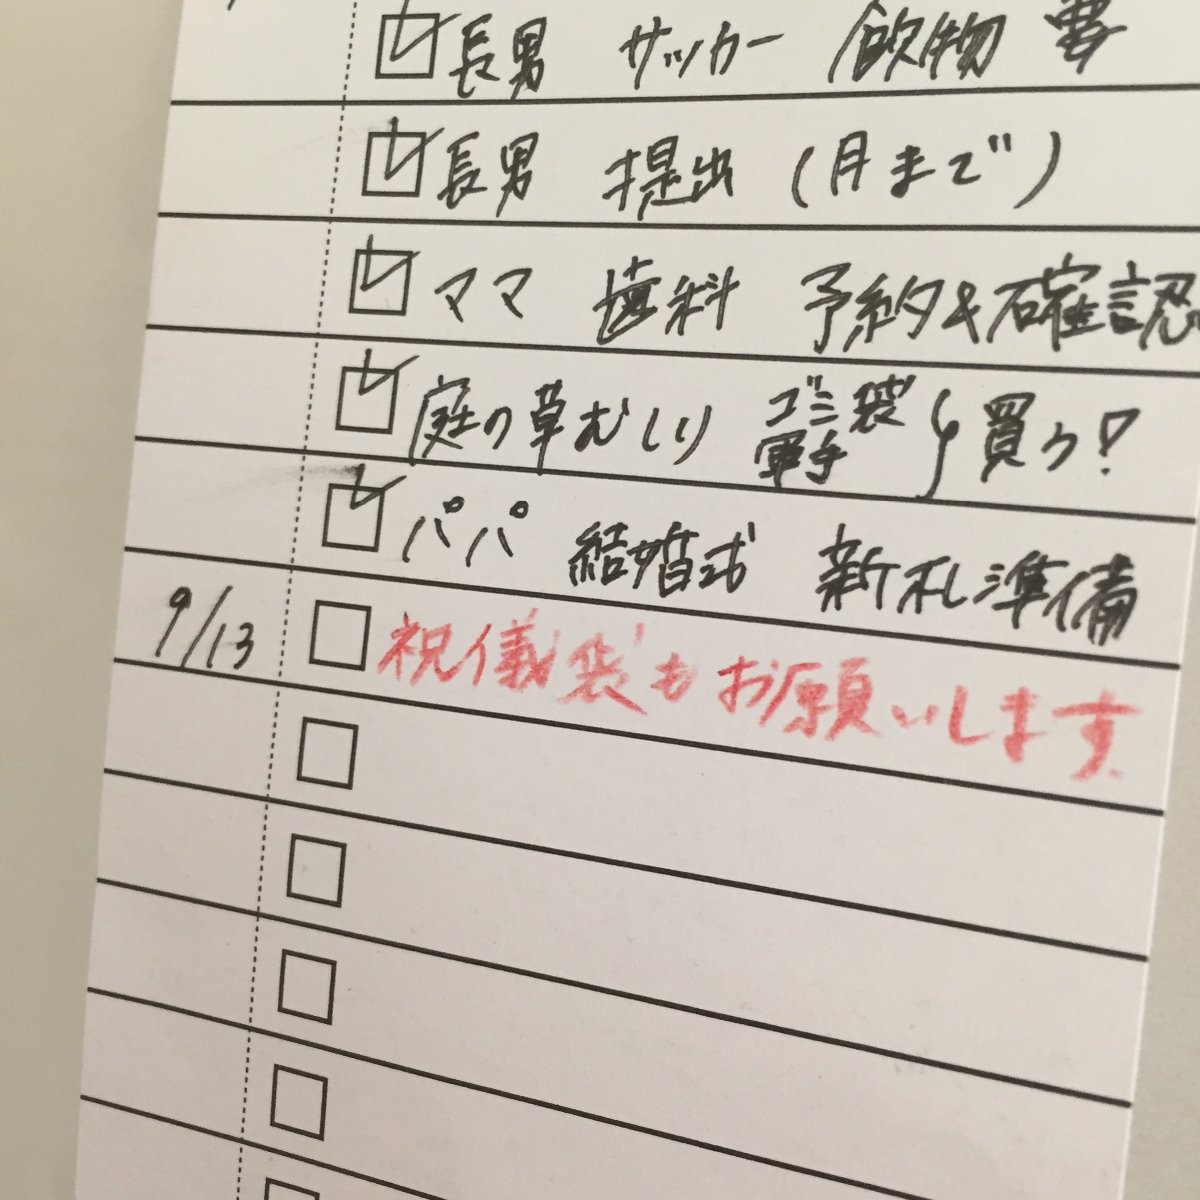 長男 サッカー 飲物
長男 提出 (月まで)
ママ 歯科 予約&確認
庭の草むしり ゴミ袋 軍手 買う!
パパ 結婚式 新札準備
9/13 祝儀袋もお願いします